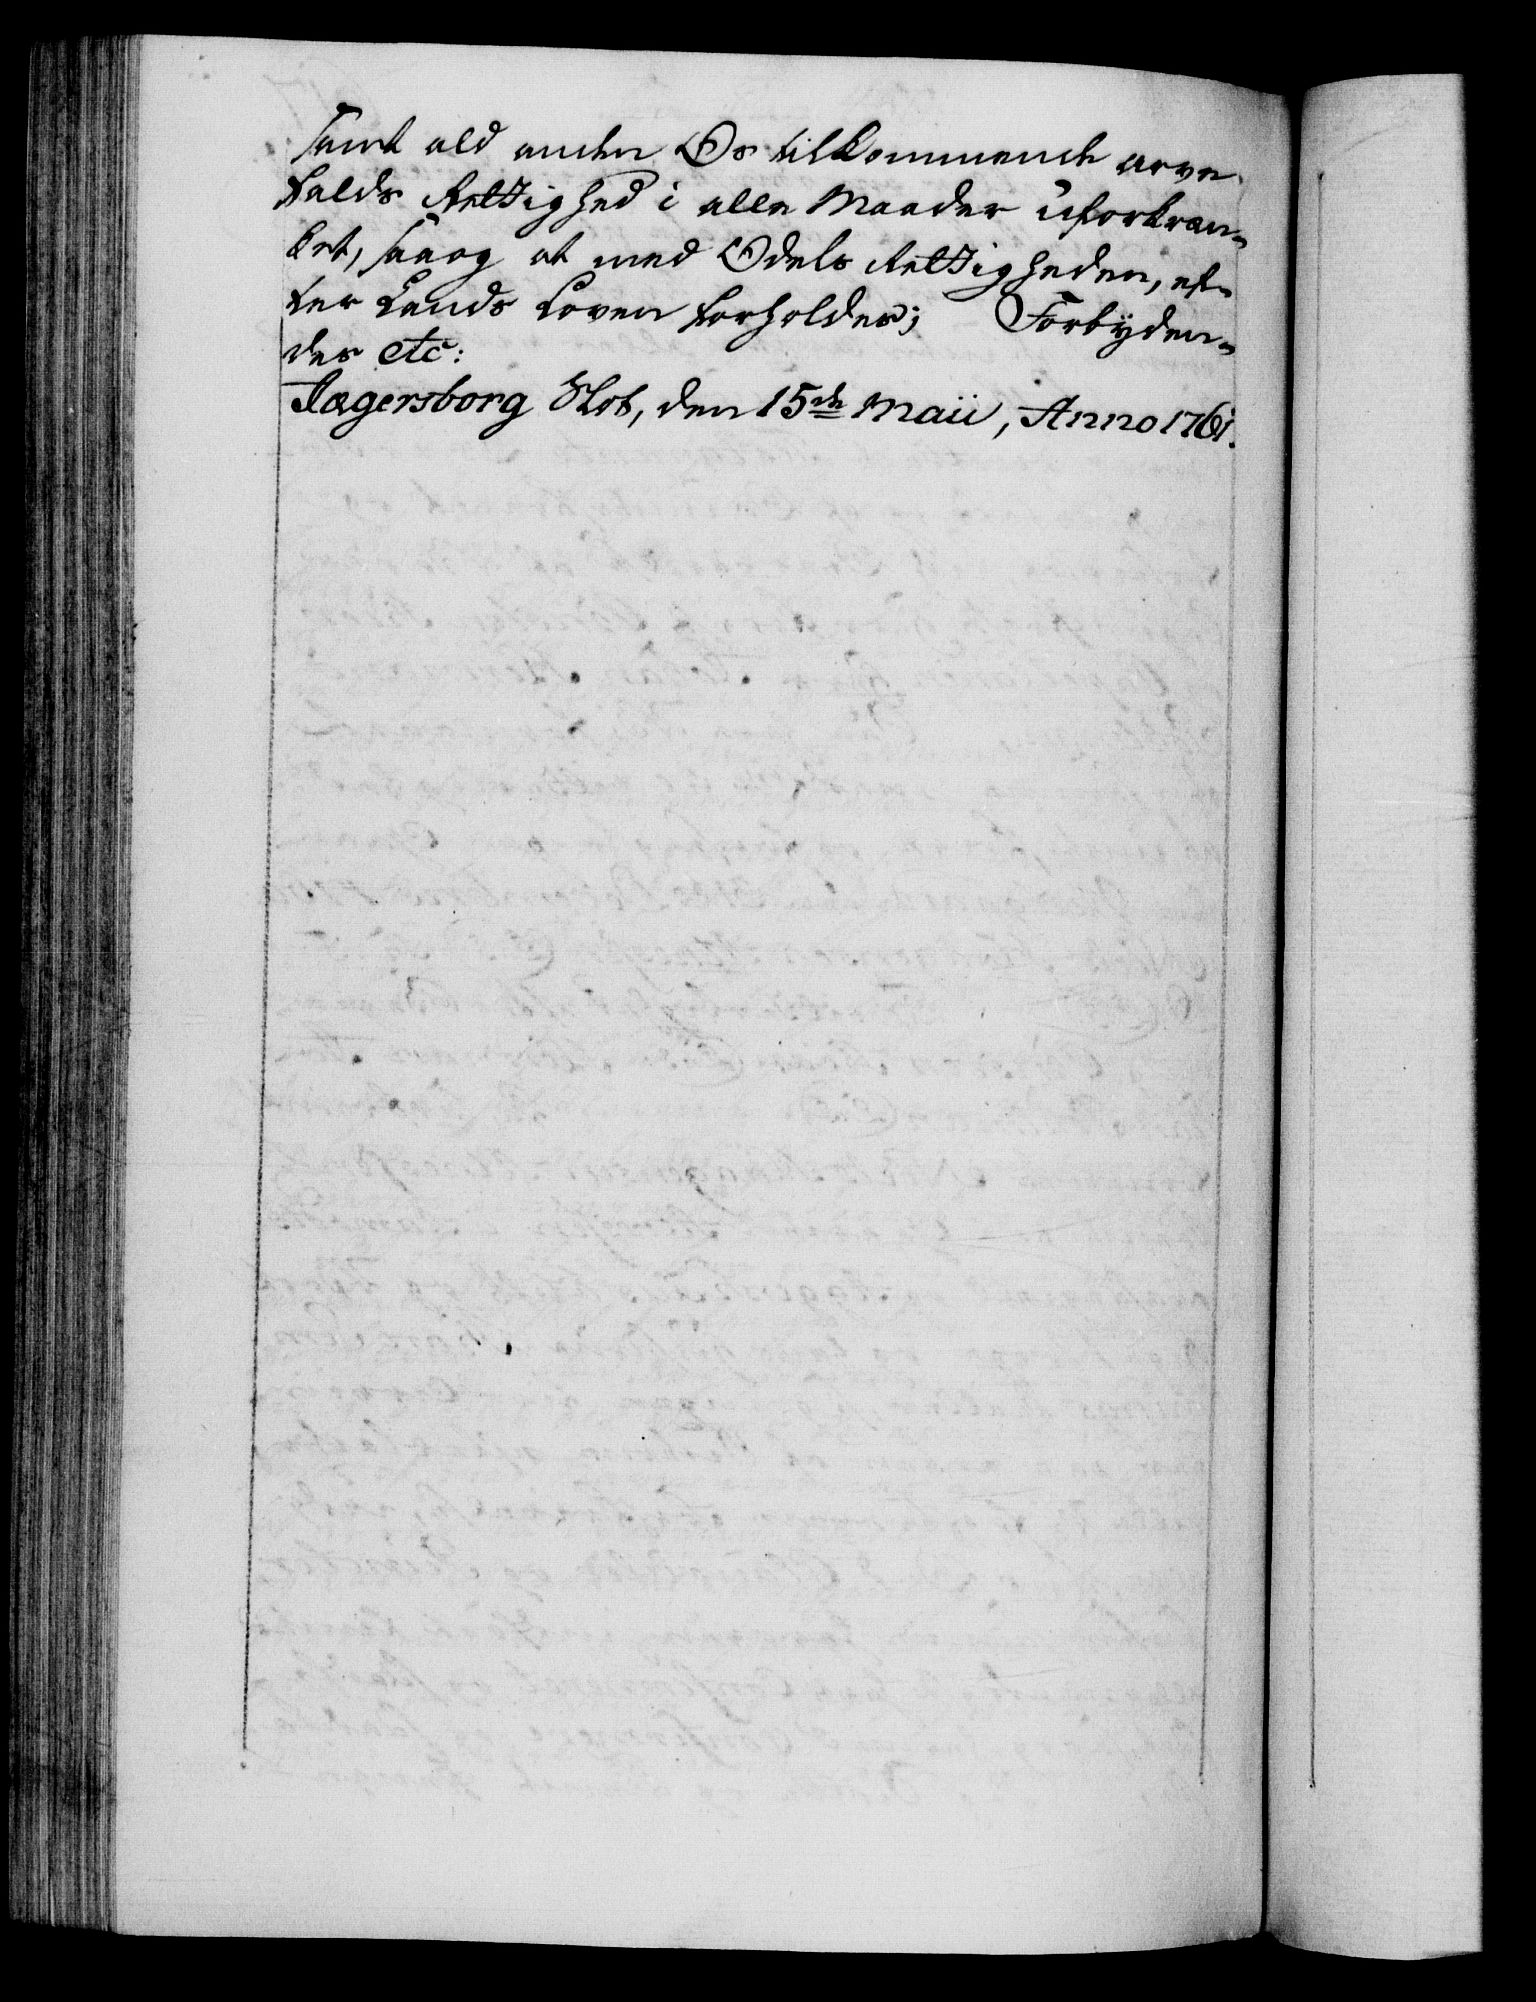 samt ald anden Os tilkommende arve-
falds Rettighed i alle Maader uforkræn-
ket, saa og at med Odels Rettigheden, ef-
ter Lands Loven forholdes; Forbyden-
des etc:
Jægersborg Slot, den 15de Maii, Anno 1761.